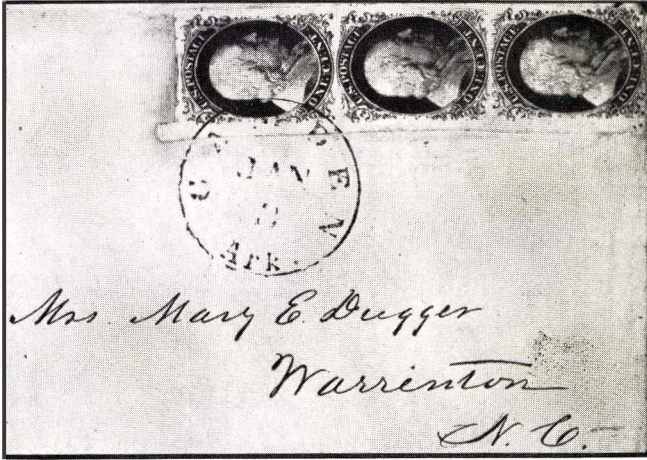 U.S. POSTAGE ONE CENT
U.S. POSTAGE ONE CENT
U.S. POSTAGE ONE CENT
CAMDEN
JAN
Ark.
Mrs. Mary E. Dugger
Warrenton
N. C.